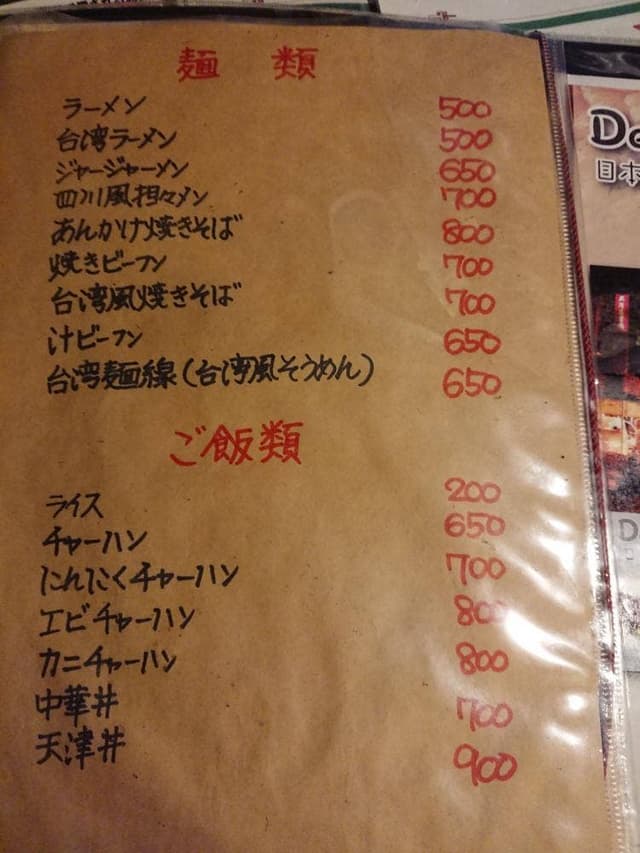 麺 類
ラーメン 500
台湾ラーメン 500
ジャージャーメン 650
四川風担々メン 700
あんかけ焼きそば 800
焼きビーフン 700
台湾風焼きそば 700
汁ビーフン 650
台湾麺線(台湾風そうめん) 650
ご飯類
ライス 200
チャーハン 650
にんにくチャーハン 700
エビチャーハン 800
カニチャーハン 800
中華丼 700
天津丼 900
日本